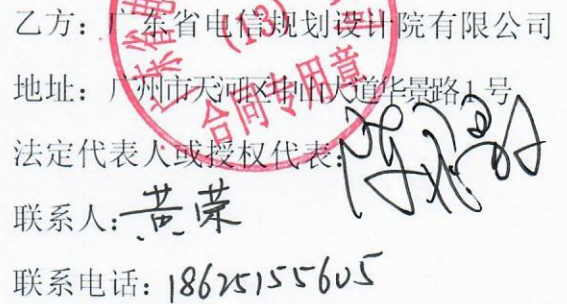 乙方：广东省电信规划设计院有限公司
地址：广州市天河区中山大道华景路1号
法定代表人或授权代表：
联系人：黄荣
联系电话：18625155605
(13)
合同专用章